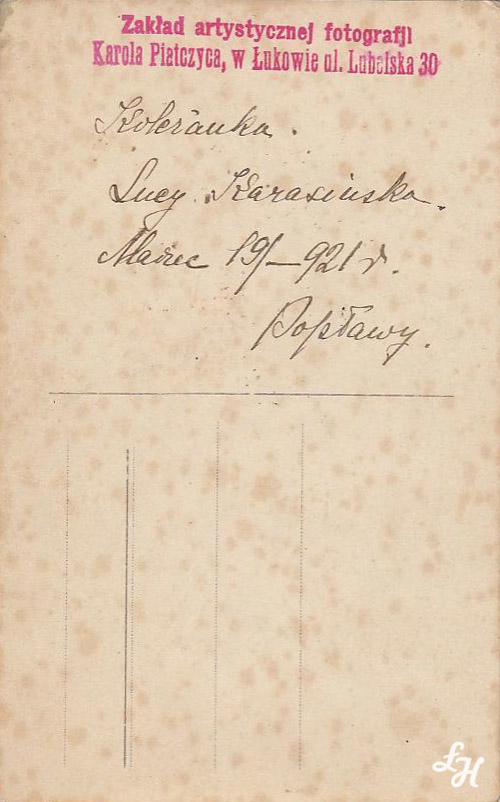 Zakład artystycznej fotografji
Karola Piatczyca, w Łukowie ul. Lubelska 30
Koleżanka.
Lucy Karasińska.
Marzec 19/—921 r.
Popławy.
ŁH